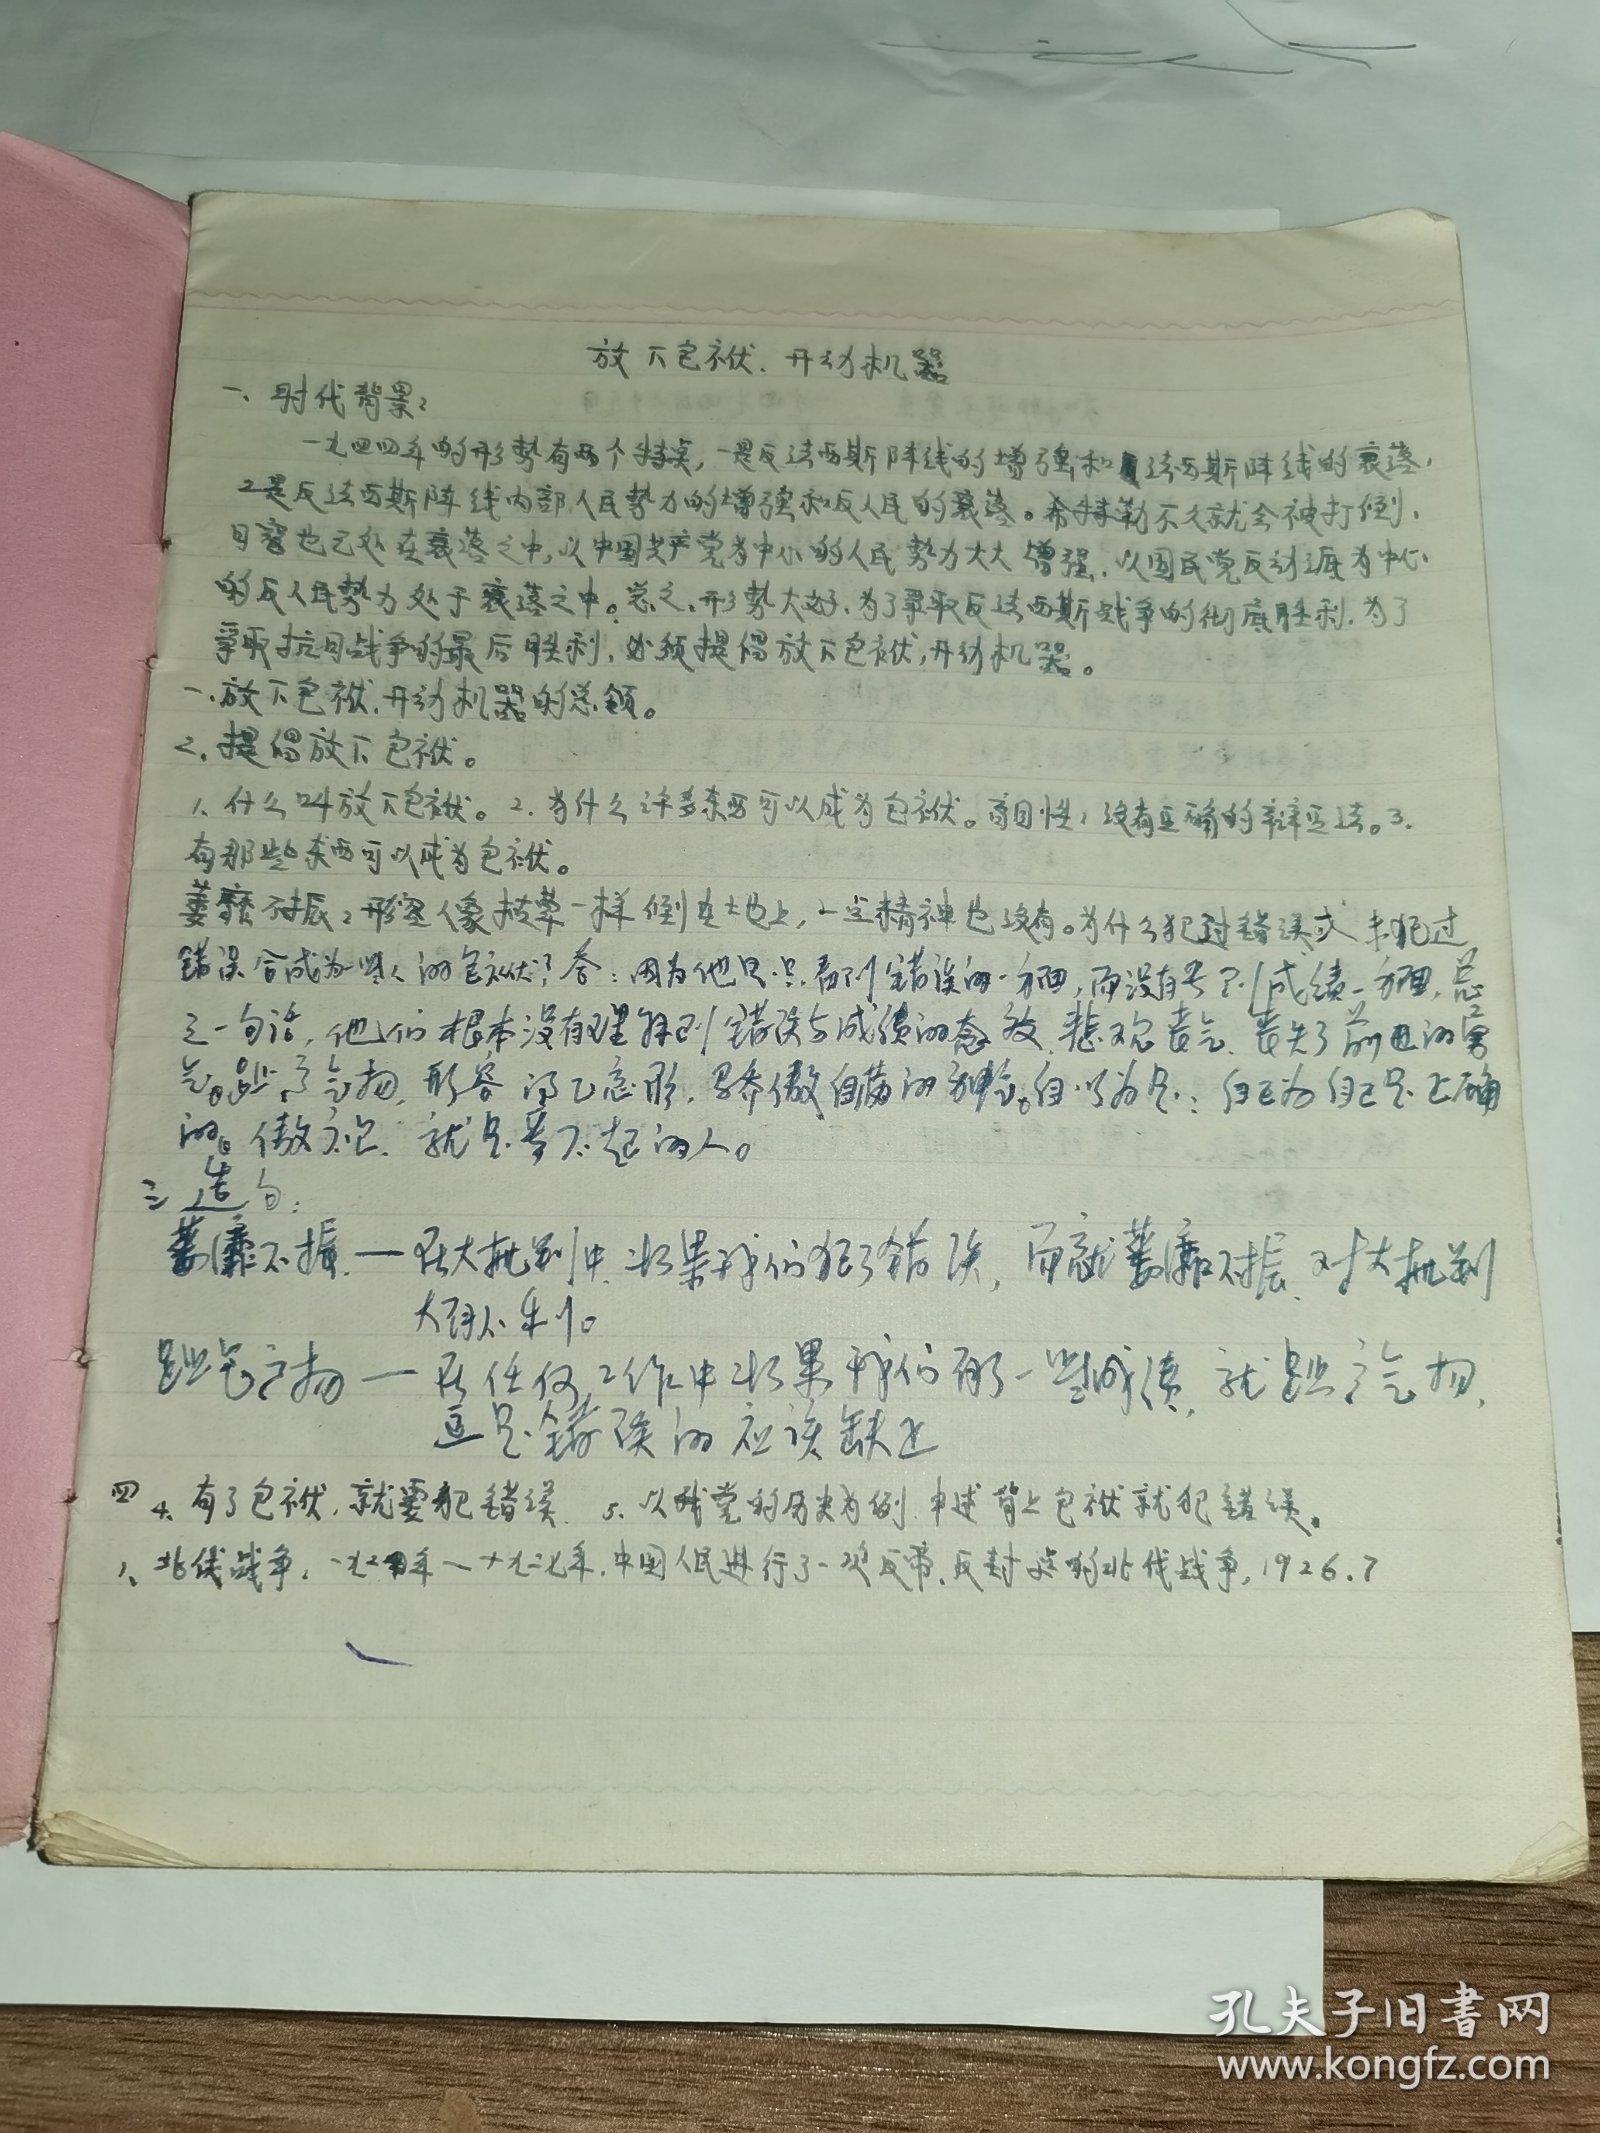 放下包袱、开动机器
一、时代背景：
一九四四年的形势有两个特点，一是反法西斯阵线的增强和法西斯阵线的衰落，
二是反法西斯阵线内部人民势力的增强和反人民的衰落。希特勒不久就会被打倒，
日寇也已处在衰落之中，以中国共产党为中心的人民势力大大增强，以国民党反动派为中心
的反人民势力处于衰落之中。总之，形势大好，为了争取反法西斯战争的彻底胜利，为了
争取抗日战争的最后胜利，必须提倡放下包袱，开动机器。
一、放下包袱、开动机器的总领。
2、提倡放下包袱。
1、什么叫放下包袱。2、为什么许多东西可以成为包袱。盲目性，没有正确的辩证法。3、
有那些东西可以成为包袱。
萎靡不振：形容人像枯草一样倒在地上，一点精神也没有。为什么犯过错误或未犯过
错误会成为一些人的包袱？答：因为他只看到错误的一方面，而没有看到成绩一方面，总
之一句话，他们根本没有理解到错误与成绩的 悲观丧气、丧失了前进的勇
气。趾高气扬，形容得乙忘形，骄傲自满的 自以为是：自己为自己是正确
的。傲 就是看不起的人。
三 造句：
萎靡不振 — 在大批判中，如果我们犯了错误，而就萎靡不振，对大批判
大有不利。
趾气高扬 — 在任何工作中如果我们有了一些成绩，就趾高气扬，
这是错误的应该
四 4、有了包袱，就要犯错误 5、以我党的历史为例，申述背上包袱就犯错误。
1、北伐战争：一九二四年—一九二七年，中国人民进行了一次反帝、反封建的北伐战争，1926.7
孔夫子旧书网
www.kongfz.com